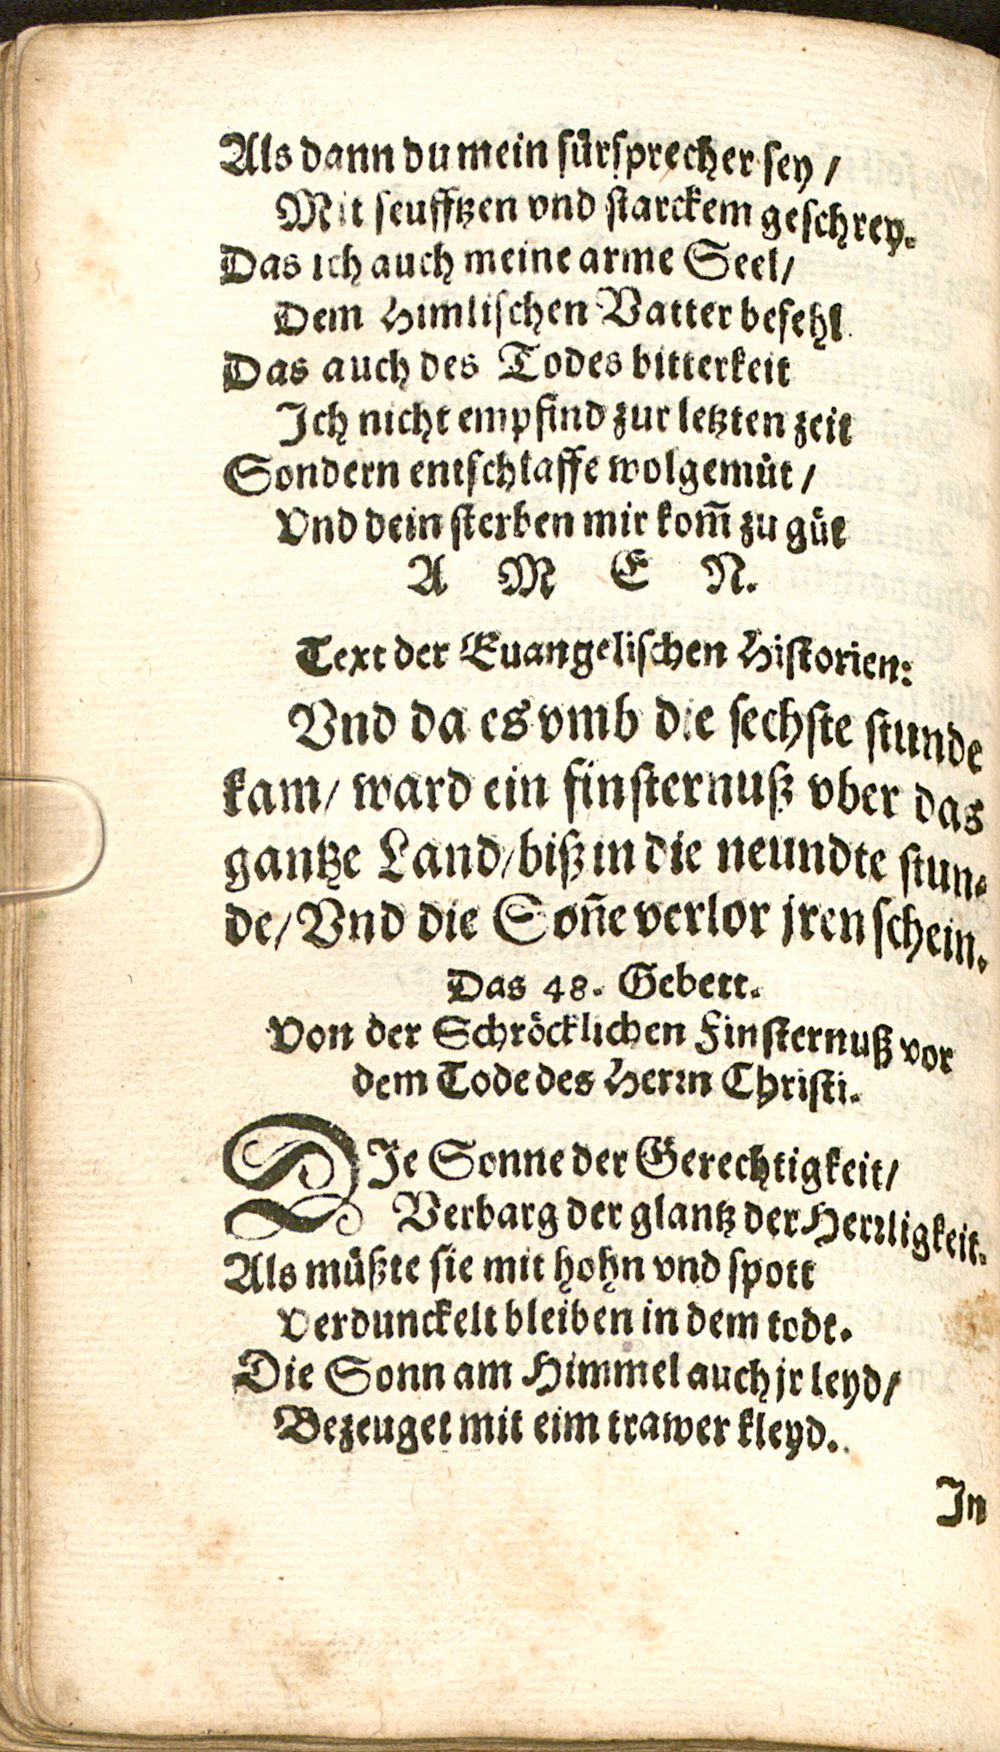 Als dann du mein fürsprecher sey /
Mit seufftzen vnd starckem geschrey.
Das ich auch meine arme Seel/
Dem Himlischen Vatter befehl
Das auch des Todes bitterkeit
Ich nicht empfind zur letzten zeit
Sondern entschlaffe wolgemüt /
Vnd dein sterben mir kom̄ zu güt
A M E N.
Text der Euangelischen Historien:
Vnd da es vmb die sechste stunde
kam/ ward ein finsternuß vber das
gantze Land/ biß in die neundte stun⸗
de/ Vnd die Son̄e verlor jren schein.
Das 48. Gebett.
Von der Schröcklichen Finsternuß vor
dem Tode des Herrn Christi.
DIe Sonne der Gerechtigkeit/
Verbarg der glantz der Herrligkeit.
Als müßte sie mit hohn vnd spott
Verdunckelt bleiben in dem todt.
Die Sonn am Himmel auch jr leyd/
Bezeuget mit eim trawer kleyd.
In